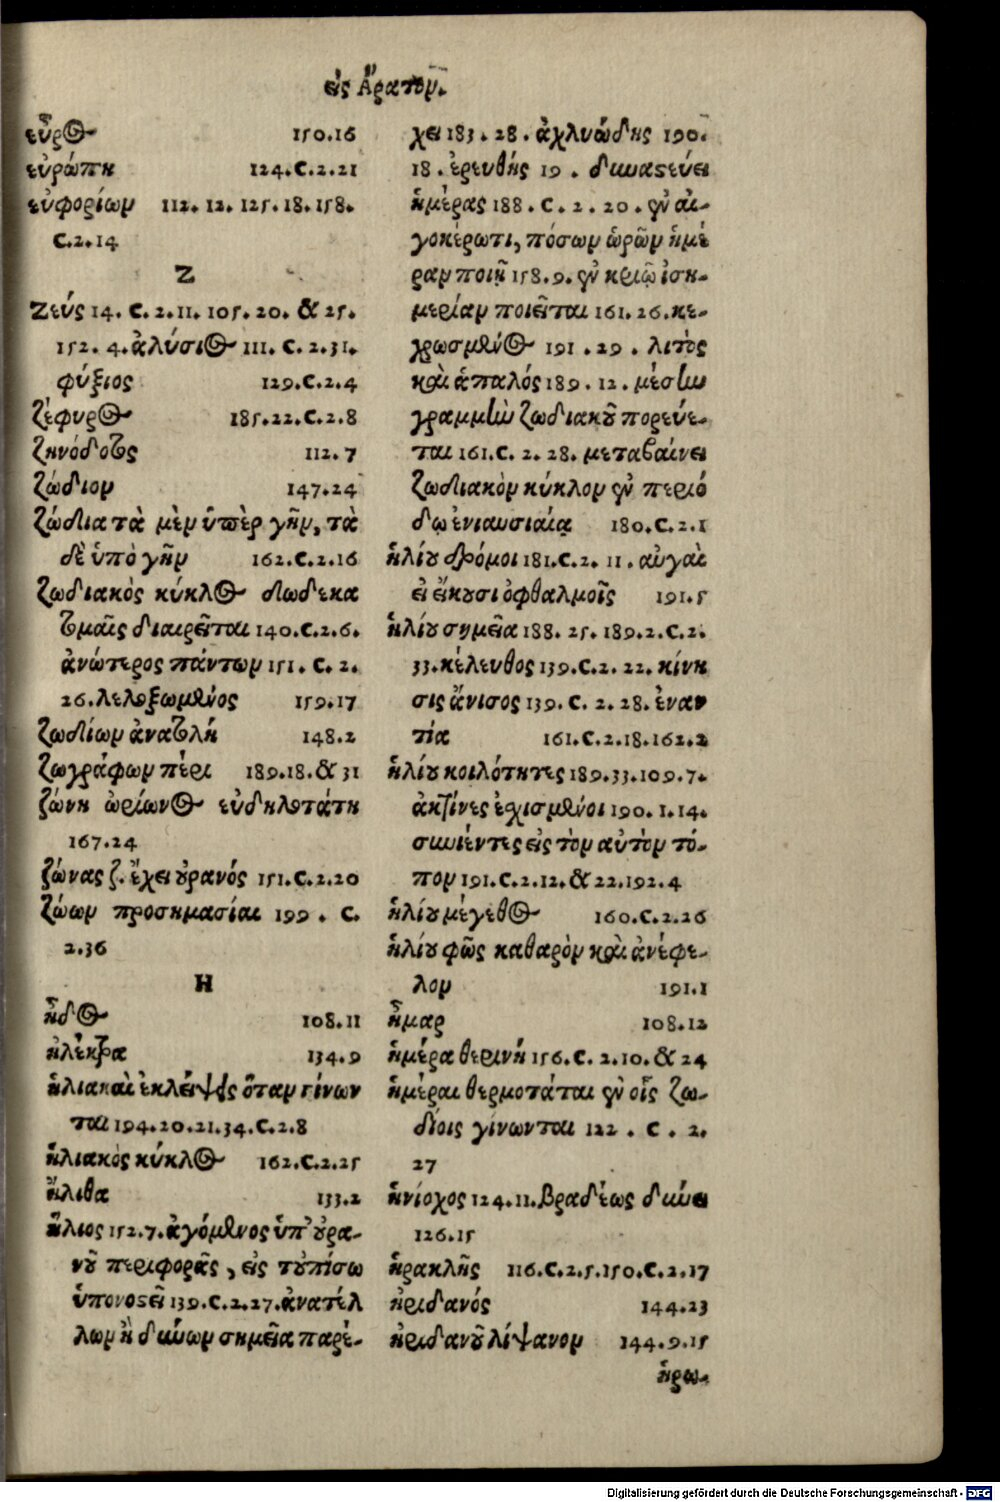 εἰς Ἄρατον.
εὖρος 150.16
εὐρώπη 124.C.2.21
εὐφορίων 112. 12. 125. 18. 158.
C.2.14
Ζ
Ζεύς 14. C. 2. 11. 105. 20. & 25.
152. 4. ἀλύσιος 111. C. 2. 31.
φύξιος 129.C.2.4
ζέφυρος 185.22.C.2.8
ζηνόδοτος 112.7
ζώδιον 147.24
ζώδια τὰ μὲν ὑπὲρ γῆν, τὰ
δὲ ὑπὸ γῆν 162.C.2.16
ζωδιακὸς κύκλος δώδεκα
τομαῖς διαιρεῖται 140.C.2.6.
ἀνώτερος πάντων 151. C. 2.
26. λελοξωμένος 159.17
ζωδίων ἀνατολή 148.2
ζωγράφων πέρι 189.18. & 31
ζώνη ὠρίωνος εὐδηλοτάτη
167.24
ζώνας ζ. ἔχει οὐρανός 151.C.2.20
ζώων προσημασίαι 199. C.
2.36
Η
ἦδος 108.11
ἠλέκτρα 134.9
ἡλιακαὶ ἐκλείψεις ὅταν γίνων
ται 194.20.21.34.C.2.8
ἡλιακὸς κύκλος 162.C.2.25
ἤλιθα 133.2
ἥλιος 152.7. ἀγόμενος ὑπ' οὐρα-
νοῦ περιφορᾶς, εἰς τοὐπίσω
ὑπονοστεῖ 139.C.2.27. ἀνατέλ
λων ἢ δύνων σημεῖα παρέ-
χει 183. 28. ἀχλυώδης 190.
18. ἐρευθής 19. δυναστεύει
ἡμέρας 188. C. 2. 20. ἐν αἰ-
γοκέρωτι, πόσων ὡρῶν ἡμέ
ραν ποιῇ 158.9. ἐν κριῷ ἰση-
μερίαν ποιεῖται 161.26. κε-
χρωσμένος 191. 29. λιτὸς
καὶ ἁπαλός 189. 12. μέσην
γραμμὴν ζωδιακοῦ πορεύε-
ται 161.C. 2. 28. μεταβαίνει
ζωδιακὸν κύκλον ἐν περιό
δῳ ἐνιαυσιαίᾳ 180.C.2.1
ἡλίου δρόμοι 181.C.2. 11. αὐγαὶ
εἰ εἴκουσι ὀφθαλμοῖς 191.5
ἡλίου σημεῖα 188. 25. 189.2.C.2.
33. κέλευθος 139.C.2. 22. κίνη
σις ἄνισος 139. C. 2. 28. ἐναν
τία 161.C.2.18.162.2
ἡλίου κοιλότητες 189.33.109.7.
ἀκτίνες ἐχισμένοι 190. 1.14.
συνιέντες εἰς τὸν αὐτὸν τό-
πον 191.C.2.12. & 22.192.4
ἡλίου μέγεθος 160.C.2.26
ἡλίου φῶς καθαρὸν καὶ ἀνέφε-
λον 191.1
ἦμαρ 108.12
ἡμέρα θερινή 156.C. 2.10. & 24
ἡμέραι θερμοτάται ἐν οἷς ζω-
δίοις γίνωνται 122. C. 2.
27
ἡνίοχος 124.11. βραδέως δύνει
126.15
ἡρακλῆς 116.C.2.5.150.C.2.17
ἠριδανός 144.23
ἠριδανοῦ λίψανον 144.9.15
ἡρω-
Digitalisierung gefördert durch die Deutsche Forschungsgemeinschaft - DFG